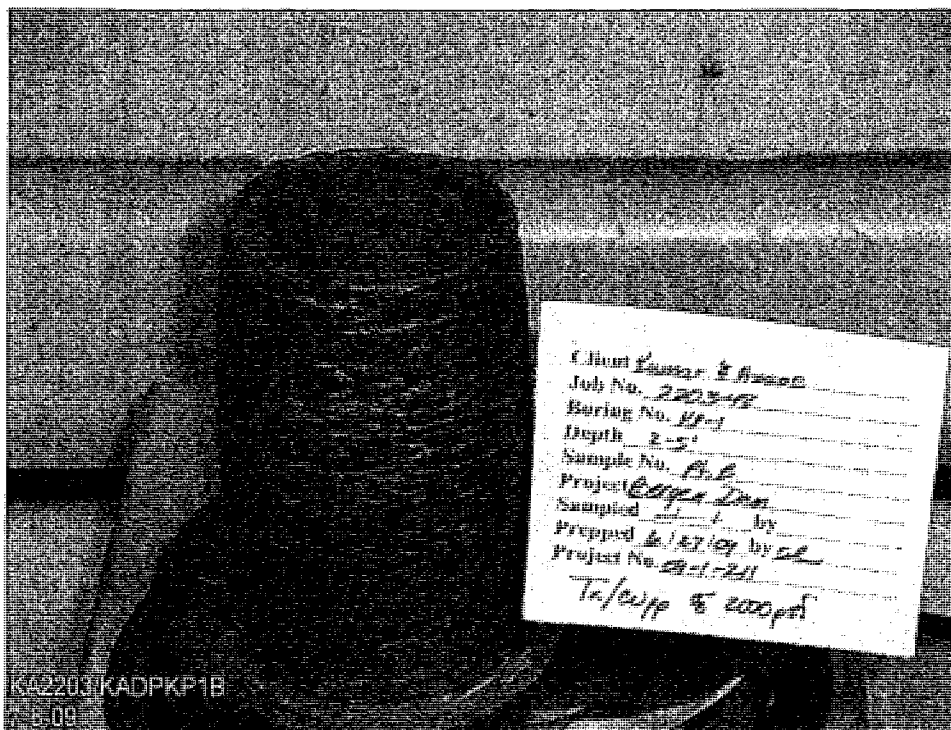 Client Kumar & Assoc
Job No. 2203-48
Boring No. KP-1
Depth 2-5'
Sample No.
Project Dam
Sampled by
Prepped 6/27/09 by
Project No. 09-1-211
Tx/CU/pp @ 2000 psf
KA2203 KADPKP1B
7 8 09